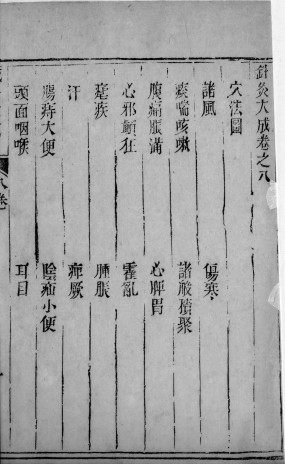 針灸大成卷之八
穴法圖
諸風　傷寒
痰喘咳嗽　諸般積聚
腹痛脹滿　心脾胃
心邪顛狂　霍亂
瘧疾　腫脹
汗　痺厥
腸痔大便　陰疝小便
頭面咽喉　耳目
八卷